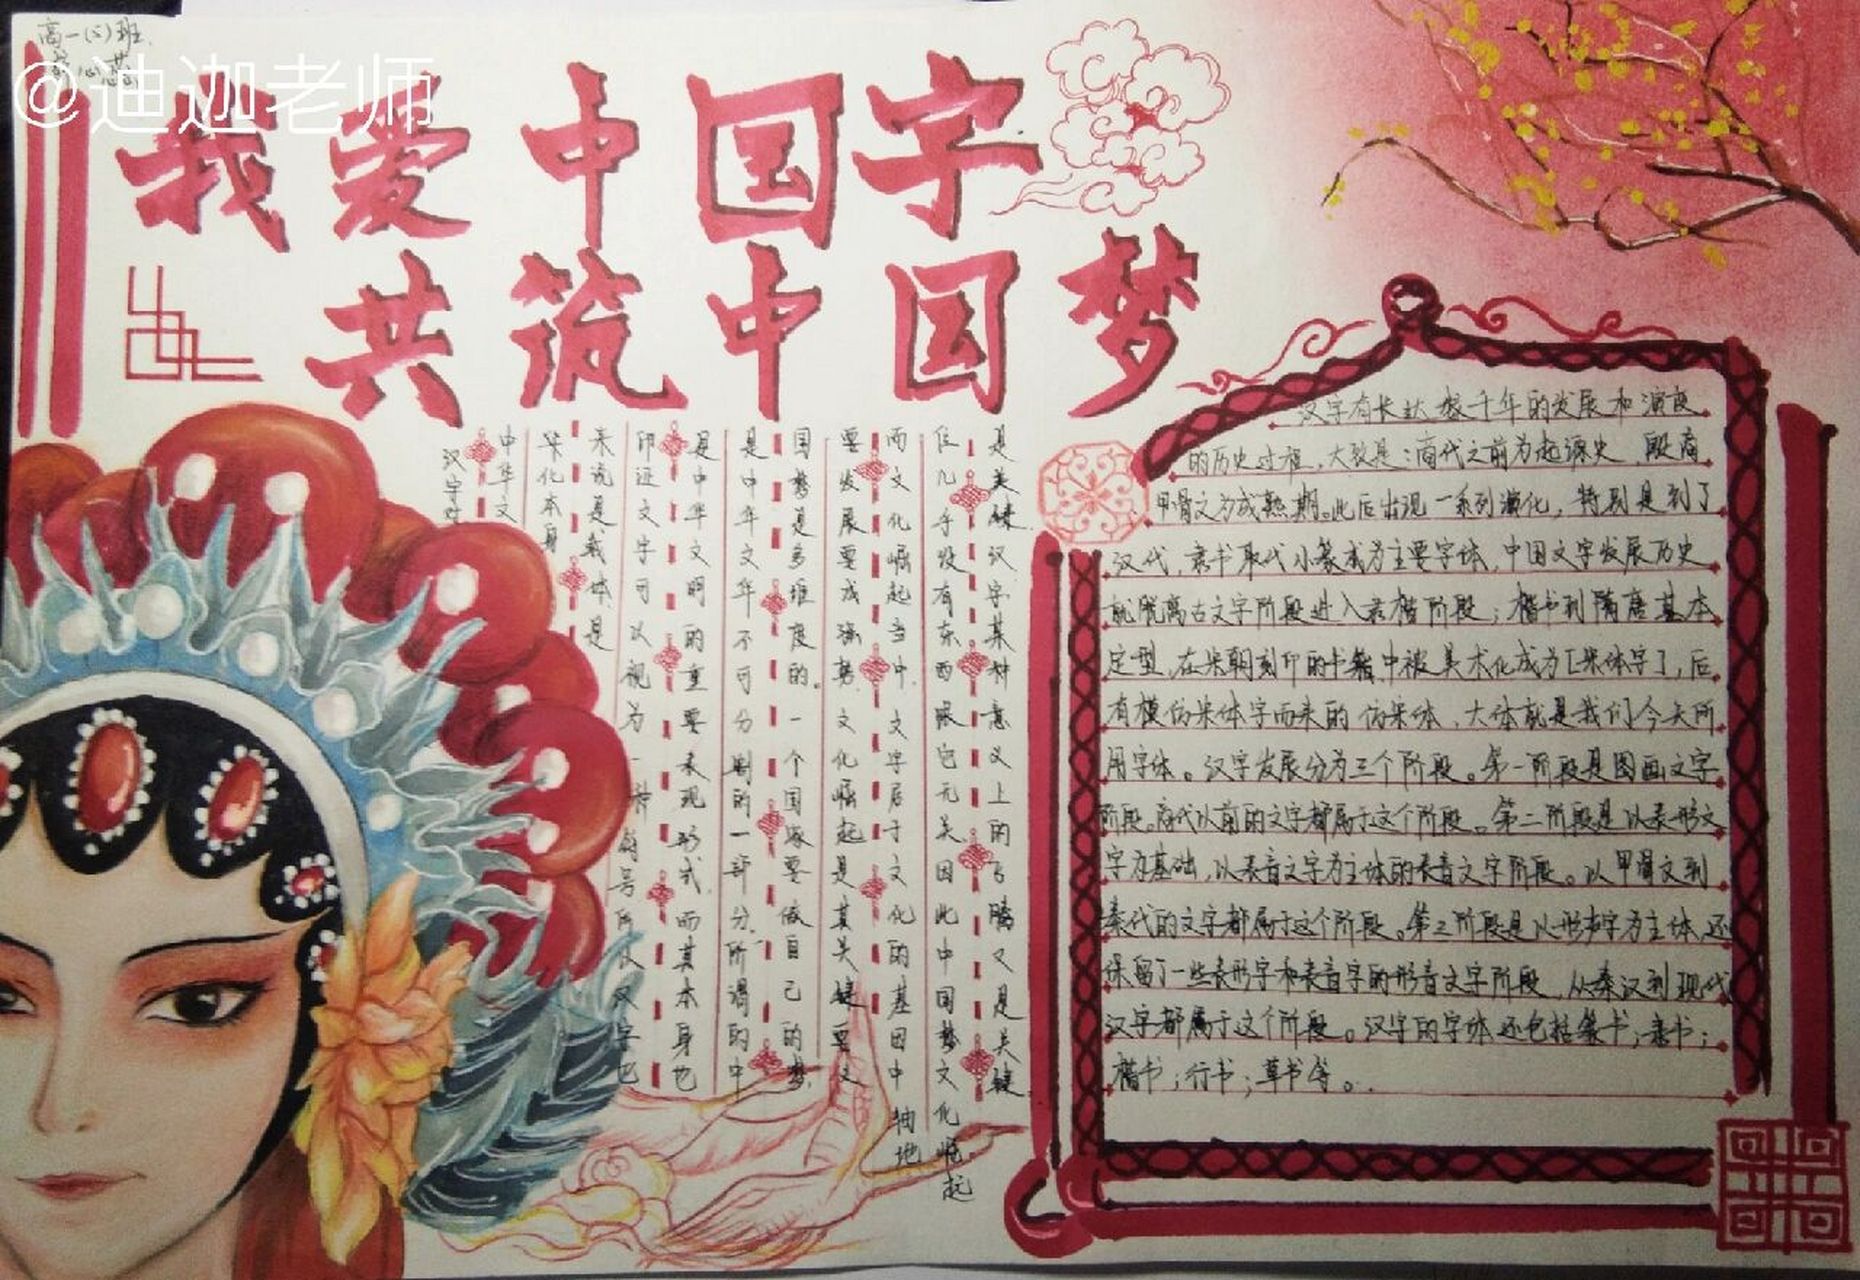 高一(5)班
@迪迦老师
我爱中国字
共筑中国梦
汉字对
中华文
华化本身
来说是载体,是
印证文字可以视为一种符号所以汉字也
是中华文明的重要表现形式,而其本身也
是中华文华不可分割的一部分,所谓的中
国梦是多维度的。一个国家要做自己的梦,
要发展要成强势,文化崛起是其关键要义
而文化崛起当中,文字居于文化的基因中轴地
位几乎没有东西跟它无关因此中国梦文化崛起
是关键,汉字某种意义上的飞腾又是关键
汉字有长达数千年的发展和演变
的历史过程,大致是:商代之前为起源史,殷商
甲骨文为成熟期。此后出现一系列演化,特别是到了
汉代,隶书取代小篆成为主要字体,中国文字发展历史
就脱离古文字阶段进入隶楷阶段;楷书到隋唐基本
定型,在宋朝刻印的书籍中被美术化成为[宋体字],后
有模仿宋体字而来的仿宋体,大体就是我们今天所
用字体。汉字发展分为三个阶段。第一阶段是图画文字
阶段。商代以前的文字都属于这个阶段。第二阶段是以表形文
字为基础,以表音文字为主体的表音文字阶段。以甲骨文到
秦代的文字都属于这个阶段。第三阶段是以形声字为主体,还
保留了一些表形字和表音字的形音文字阶段,从秦汉到现代
汉字都属于这个阶段。汉字的字体还包括篆书;隶书;
楷书;行书;草书等。